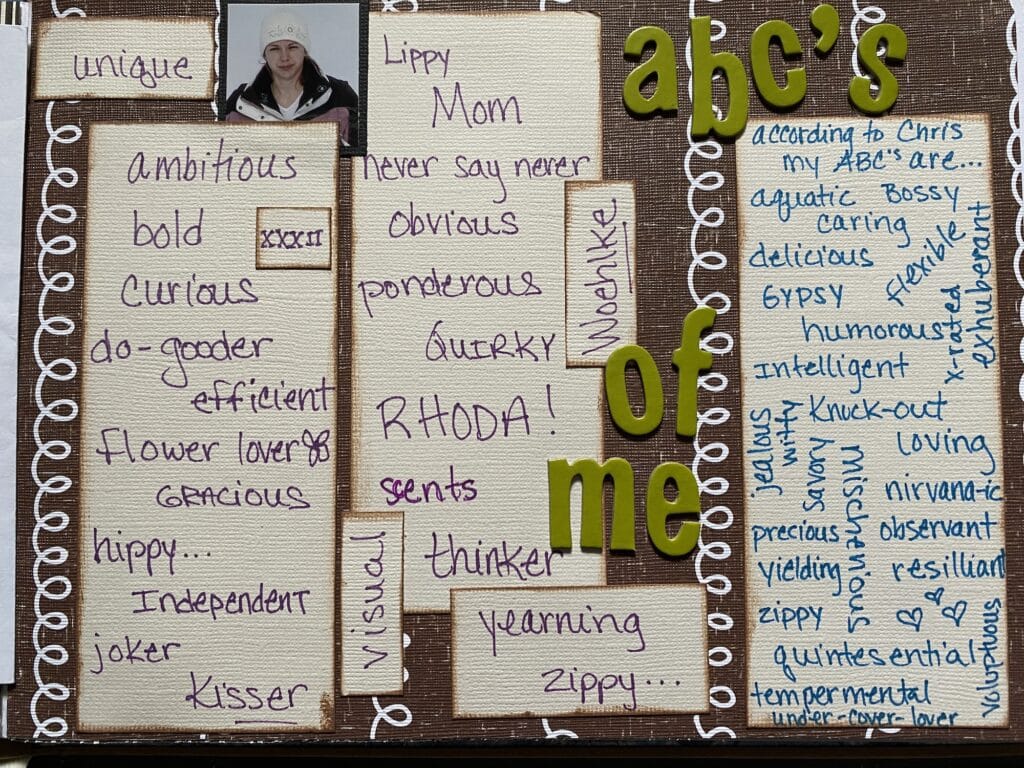 unique
ambitious
bold
XXXII
Curious
do-gooder
efficient
flower lover
GRACIOUS
hippy...
Independent
joker
Kisser
Lippy
Mom
never say never
Obvious
ponderous
QUIRKY
RHODA!
scents
thinker
Woehlke
visual
yearning
zippy...
abc's
of
me
according to Chris
my ABC's are...
aquatic Bossy
caring
delicious
flexible
GYPSY
humorous
x-rated
exhuberant
Intelligent
Knuck-out
jealous
witty
savory
mischevious
loving
nirvana-ic
precious observant
yielding resilliant
zippy
quintesential
voluptuous
tempermental
under-cover-lover